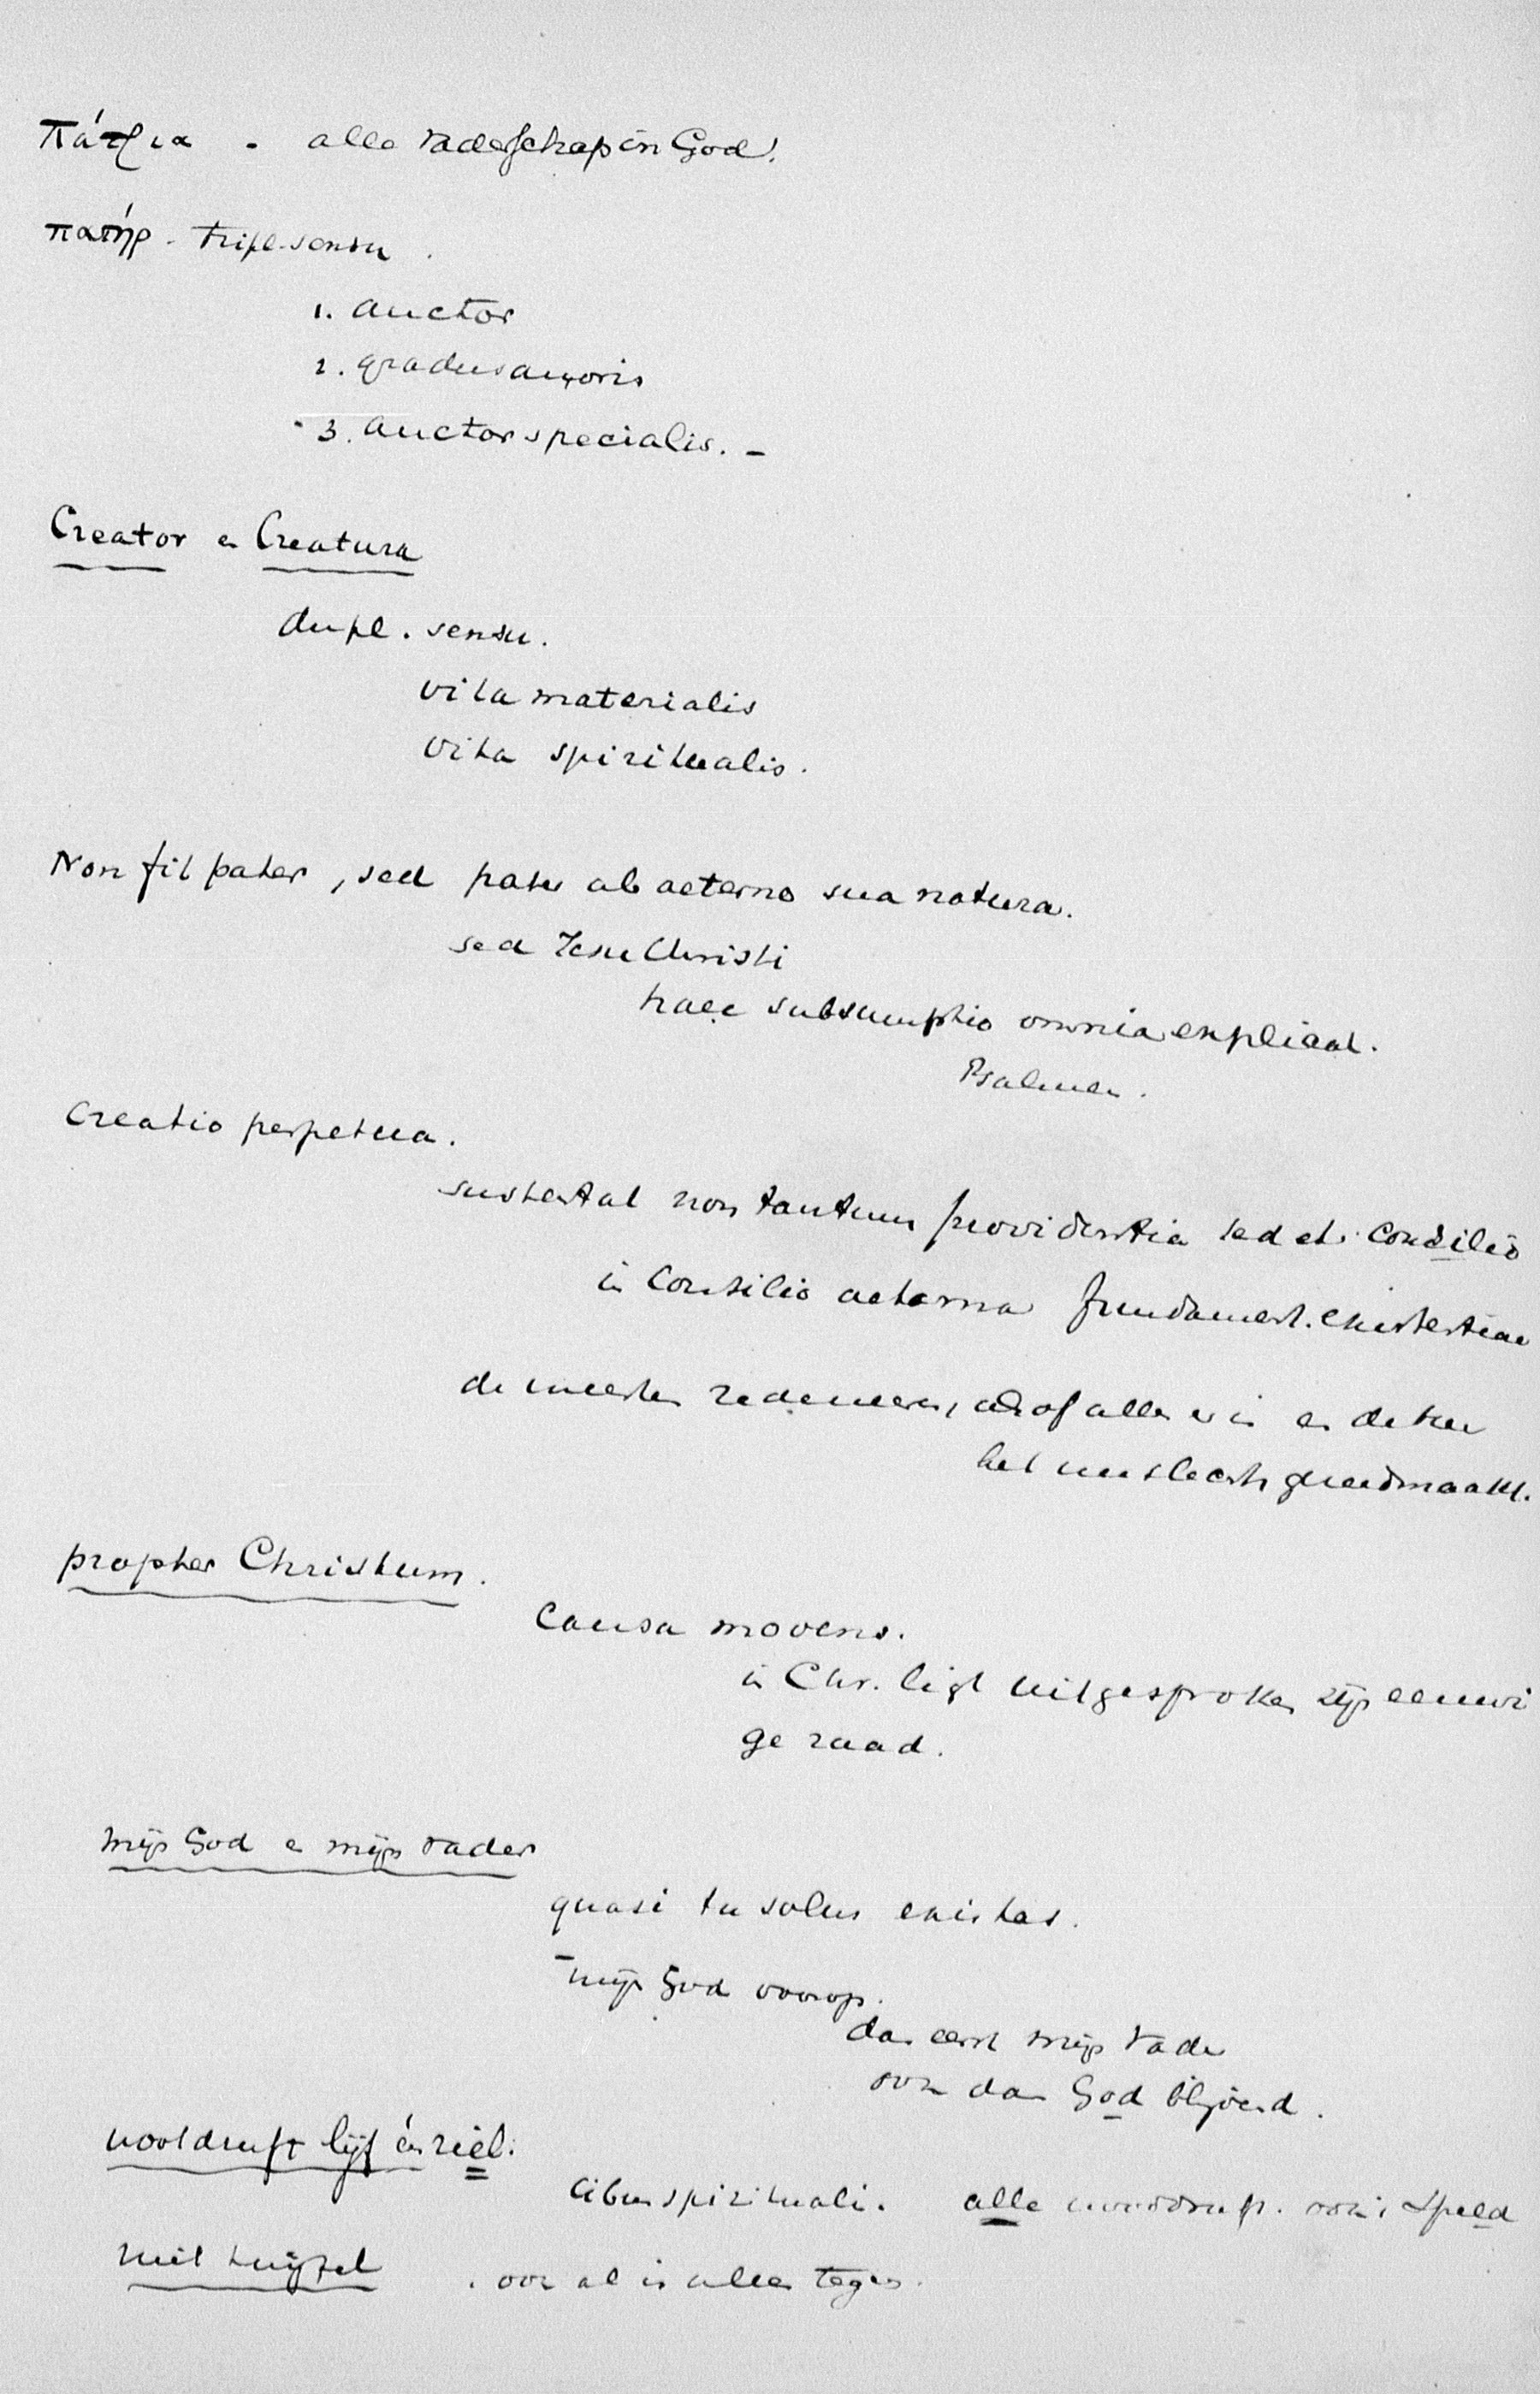 πάτρια - alle vaderschap in God!
πατήρ - tripl. sensu.
1. auctor
2. gradus amoris
3. auctor specialis. -
Creator en Creatura
dupl. sensu.
vita materialis
vita spiritualis.
Non fit pater, sed pater ab aeterno sua natura.
sed Jesu Christi
haec subsumptio omnia explicat.
Psalmen.
Creatio perpetua.
sustentat non tantum providentia sed et consilio
in Consilio aeterna fundament. existentiae
de meesten redeneeren, alsof alles er is en de Heer
het nu slechts goedmaakt.
propter Christum.
Causa movens.
in Chr. ligt uitgesproken zijn eeuwi
ge raad.
mijn God en mijn vader
quasi tu solus existas.
- mijn God voorop.
dan eerst mijn vader
ook dan God blijvend.
nooddruft lijf én ziel.
Cibus spirituali. alle nooddruft. ook speld
niet twijfel . ook al is alles tegen.